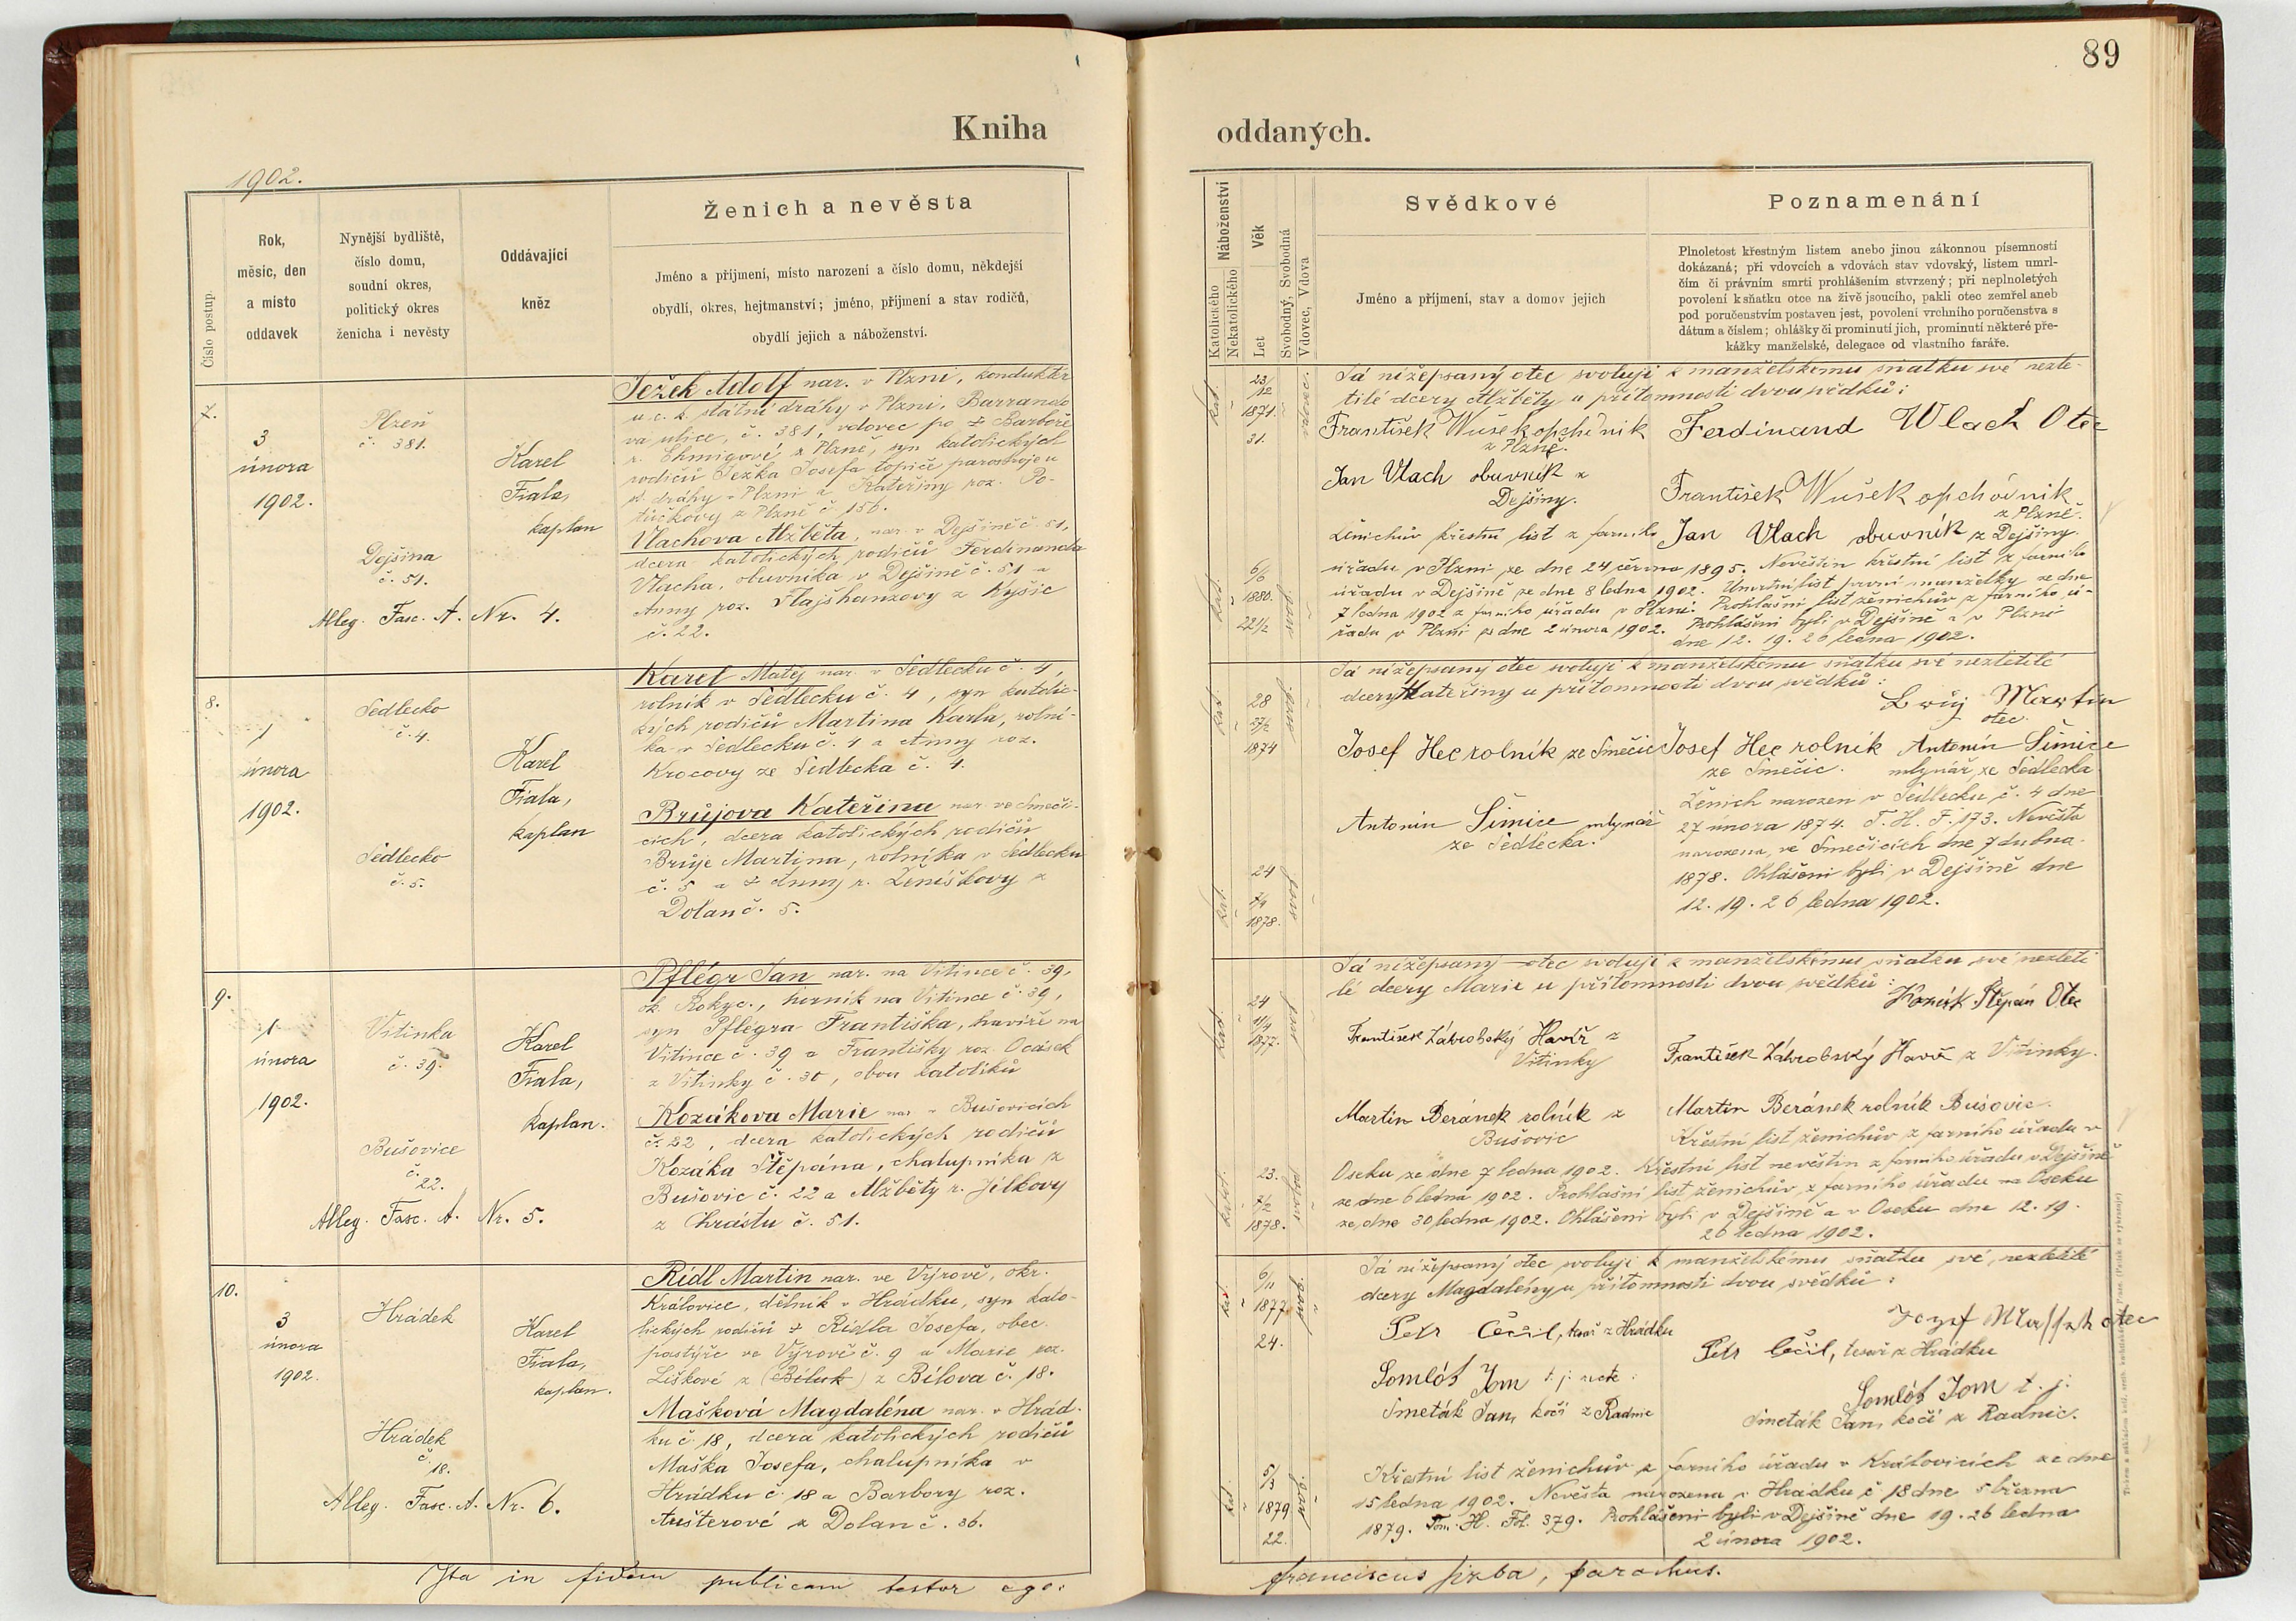 89
Kniha
oddaných.
1902.
Číslo postup.
Rok,
měsíc, den
a místo
oddavek
Nynější bydliště,
číslo domu,
soudní okres,
politický okres
ženicha i nevěsty
Oddávající
kněz
Ženich a nevěsta
Jméno a příjmení, místo narození a číslo domu, někdejší
obydlí, okres, hejtmanství; jméno, příjmení a stav rodičů,
obydlí jejich a náboženství.
Náboženství
Katolického
Nekatolického
Věk
Let
Svobodný, Svobodná
Vdovec, Vdova
Svědkové
Jméno a příjmení, stav a domov jejich
Poznamenání
Plnoletost křestným listem anebo jinou zákonnou písemností
dokázaná; při vdovcích a vdovách stav vdovský, listem umrl-
čím či právním smrti prohlášením stvrzený; při neplnoletých
povolení k sňatku otce na živě jsoucího, pakli otec zemřel aneb
pod poručenstvím postaven jest, povolení vrchního poručenstva s
dátum a číslem; ohlášky či prominutí jich, prominutí některé pře-
kážky manželské, delegace od vlastního faráře.
7.
3
února
1902.
Plzeň
č. 381.
Dejšina
č. 51.
Alleg. Fasc. A. Nr. 4.
Karel
Fiala,
kaplan
Ježek Adolf nar. v Plzni, kondukter
u c. k. státní dráhy v Plzni, Barrando
va ulice, č. 381, vdovec po + Barboře
r. Ehmigové z Plzně, syn katolických
rodičů Ježka Josefa topiče parostroje u
st. dráhy v Plzni a Kateřiny roz. Po-
tůčkovy z Plzně č. 156.
Vlachova Alžběta, nar. v Dejšině č. 51,
dcera katolických rodičů Ferdinanda
Vlacha, obuvníka v Dejšině č. 51 a
Anny roz. Flajšhanzovy z Kyšic
č. 22.
kat.
23/12
1871.
31.
vdovec.
kat.
6/6
1880.
22 1/2
svob.
Já nížepsaný otec svoluji k manželskému sňatku své nezle-
tilé dcery Alžběty u přítomnosti dvou svědků:
František Wušek opchodník
z Plzně.
Ferdinand Wlach Otec
Jan Vlach obuvník z
Dejšiny.
František Wušek opchodnik
z Plzně.
Jan Vlach obuvník z Dejšiny.
Ženichův křestní list z farního
úřadu v Plzni ze dne 24 června 1895. Nevěstin křestní list z farního
úřadu v Dejšině ze dne 8 ledna 1902. Úmrtní list první manželky ze dne
7 ledna 1902 z farního úřadu v Plzni. Prohlašní list ženichův z farního ú-
řadu v Plzni ze dne 2 února 1902. Prohlášeni byli v Dejšině a v Plzni
dne 12. 19. 26 ledna 1902.
8.
února
1902.
Sedlecko
č. 4.
Sedlecko
č. 5.
Karel
Fiala,
kaplan
Karel Matěj nar. v Sedlecku č. 4,
rolník v Sedlecku č. 4, syn katolic-
kých rodičů Martina Karla, rolní-
ka v Sedlecku č. 4 a Anny roz.
Krocovy ze Sedlecka č. 4.
Brůjova Kateřina nar. ve Smeči-
cích, dcera katolických rodičů
Brůje Martina, rolníka v Sedlecku
č. 5 a + Anny r. Ženíškovy z
Dolan č. 5.
kat.
28
27/2
1874
svob.
kat.
24
7/4
1878.
svob.
Já nížepsaný otec svoluji k manželskému sňatku své nezletilé
dcery Kateřiny u přítomnosti dvou svědků:
Brůj Martin
otec.
Josef Hec rolník ze Smečic
Josef Hec rolnik
ze Smečic.
Antonín Šimice
mlynář ze Sedlecka
Antonin Šimice mlynář
ze Sedlecka.
Ženich narozen v Sedlecku č. 4 dne
27 února 1874. T. H. F. 173. Nevěsta
narozena, ve Smečicích dne 7 dubna
1878. Ohlášeni byli v Dejšině dne
12. 19. 26 ledna 1902.
9.
února
1902.
Vitinka
č. 39.
Bušovice
č.
22.
Alleg. Fasc. A. Nr. 5.
Karel
Fiala,
kaplan.
Pflégr Jan nar. na Vitince č. 39,
ok. Rokyc., horník na Vitince č. 39,
syn Pflégra Františka, havíře na
Vitince č. 39 a Františky roz. Ocásek
z Vitinky č. 30, obou katolíků
Kozákova Marie nar. v Bušovicích
č. 22, dcera katolických rodičů
Kozáka Štěpána, chalupníka z
Bušovic č. 22 a Alžběty r. Jílkovy
z Chrástu č. 51.
kat.
24
11/4
1877.
svob.
katol.
23.
7/2
1878.
svob.
Já nížepsaný otec svoluji k manželskému sňatku své nezleti
lé dcery Marie u přítomnosti dvou svědků:
Kozák Štěpán Otec
František Zábrobský Havíř z
Vitinky
František Zábrobský Havíř z Vitinky.
Martin Beránek rolník z
Bušovic
Martin Beránek rolník Bušovic.
Křestní list ženichův z farního úřadu v
Oseku ze dne 7 ledna 1902. Křestní list nevěstin z farního úřadu v Dejšině
ze dne 6 ledna 1902. Prohlašní list ženichův z farního úřadu na Oseku
ze dne 30 ledna 1902. Ohlášeni byli v Dejšině a v Oseku dne 12. 19.
26 ledna 1902.
10.
3
února
1902.
Hrádek
Hrádek
č.
18.
Alleg. Fasc. A. Nr. 6.
Karel
Fiala,
kaplan.
Rídl Martin nar. ve Výrově, okr.
Kralovice, dělník v Hrádku, syn kato-
lických rodičů + Rídla Josefa, obec.
pastýře ve Výrově č. 9 a Marie roz.
Liškové z (Béluk) z Bílova č. 18.
Mašková Magdaléna nar. v Hrád-
ku č. 18, dcera katolických rodičů
Maška Josefa, chalupníka v
Hrádku č. 18 a Barbory roz.
Aušterové z Dolan č. 36.
kat.
6/11
1877
24.
svob.
kat.
5/3
1879
22.
svob.
Já nížepsaný otec svoluji k manželskému sňatku své, nezletilé
dcery Magdalény u přítomnosti dvou svědků:
otec
Petr Čečil, tesař z Hrádku
Petr Čečil, tesař z Hrádku
t. j.
Smeták Jan, kočí z Radnic
Smeták Jan, kočí z Radnic.
Křestní list ženichův z farního úřadu v Kralovicích ze dne
15 ledna 1902. Nevěsta narozena v Hrádku č 18 dne 5 března
1879. Tom. H. Fol. 379. Prohlášeni byli v Dejšině dne 19. 26 ledna
2 února 1902.
Ita in fidem publicam testor ego:
Franciscus Jirba, parochus.